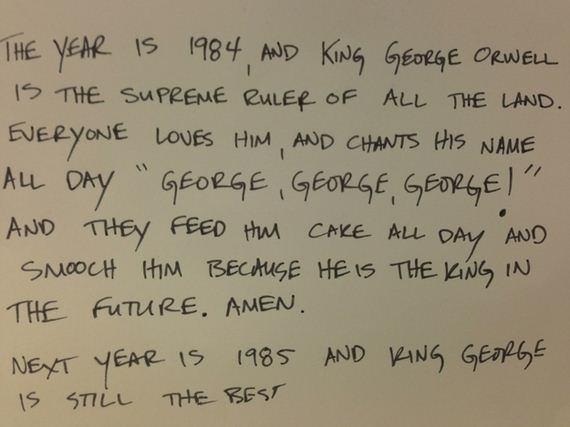 THE YEAR IS 1984, AND KING GEORGE ORWELL
IS THE SUPREME RULER OF ALL THE LAND.
EVERYONE LOVES HIM, AND CHANTS HIS NAME
ALL DAY "GEORGE, GEORGE, GEORGE!"
AND THEY FEED HIM CAKE ALL DAY AND
SMOOCH HIM BECAUSE HE IS THE KING IN
THE FUTURE. AMEN.
NEXT YEAR IS 1985 AND KING GEORGE
IS STILL THE BEST